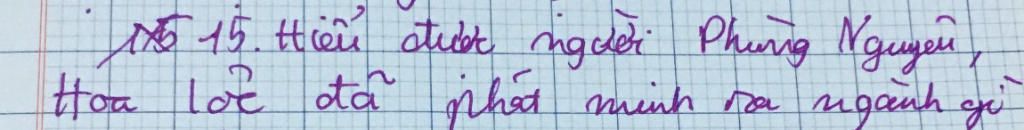 15. Hiểu được người Phùng Nguyên,
Hoa Lộc đã phát minh ra ngành gì